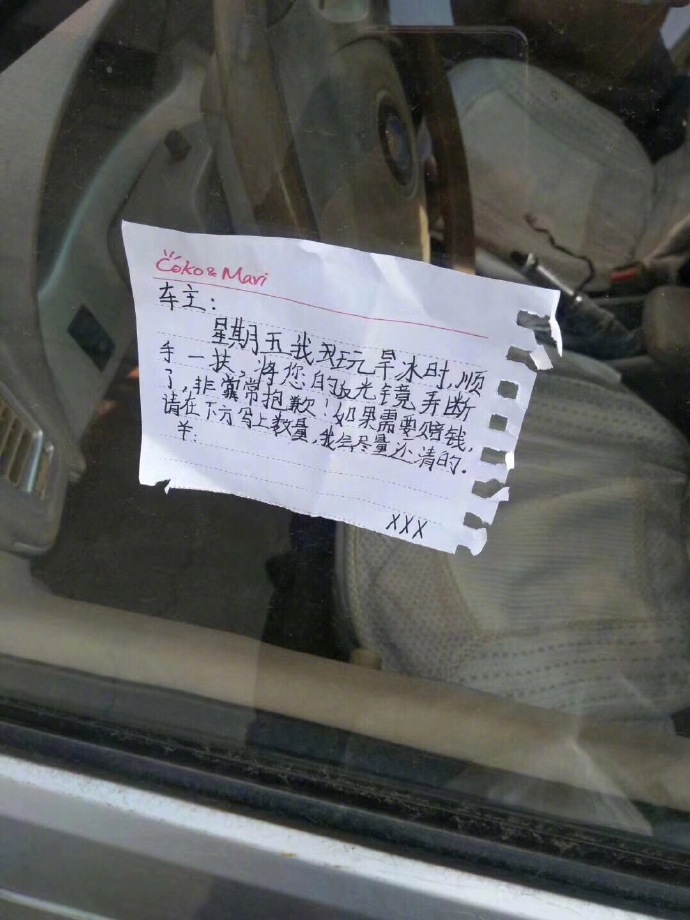 Coko & Mari
车主：
星期五我玩旱冰时，顺
手一扶，将您的反光镜弄断
了，非常抱歉！如果需要赔钱，
请在下方写上数量，我会尽量还清的．
羊：
XXX